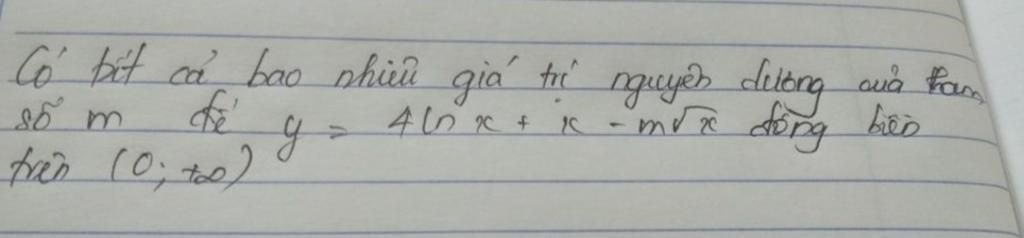 Có bít cả bao nhiêu giá trị nguyên dương của tham
số m để y = 4ln x + x - m√x đồng biến
trên (0; +∞)